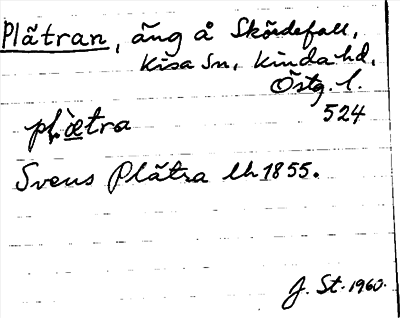 Plätran, äng å Skördefall,
Kisa sn, Kinda hd,
Östg. l.
524
plætra
Svens Plätra lh 1855.
J. St. 1960.